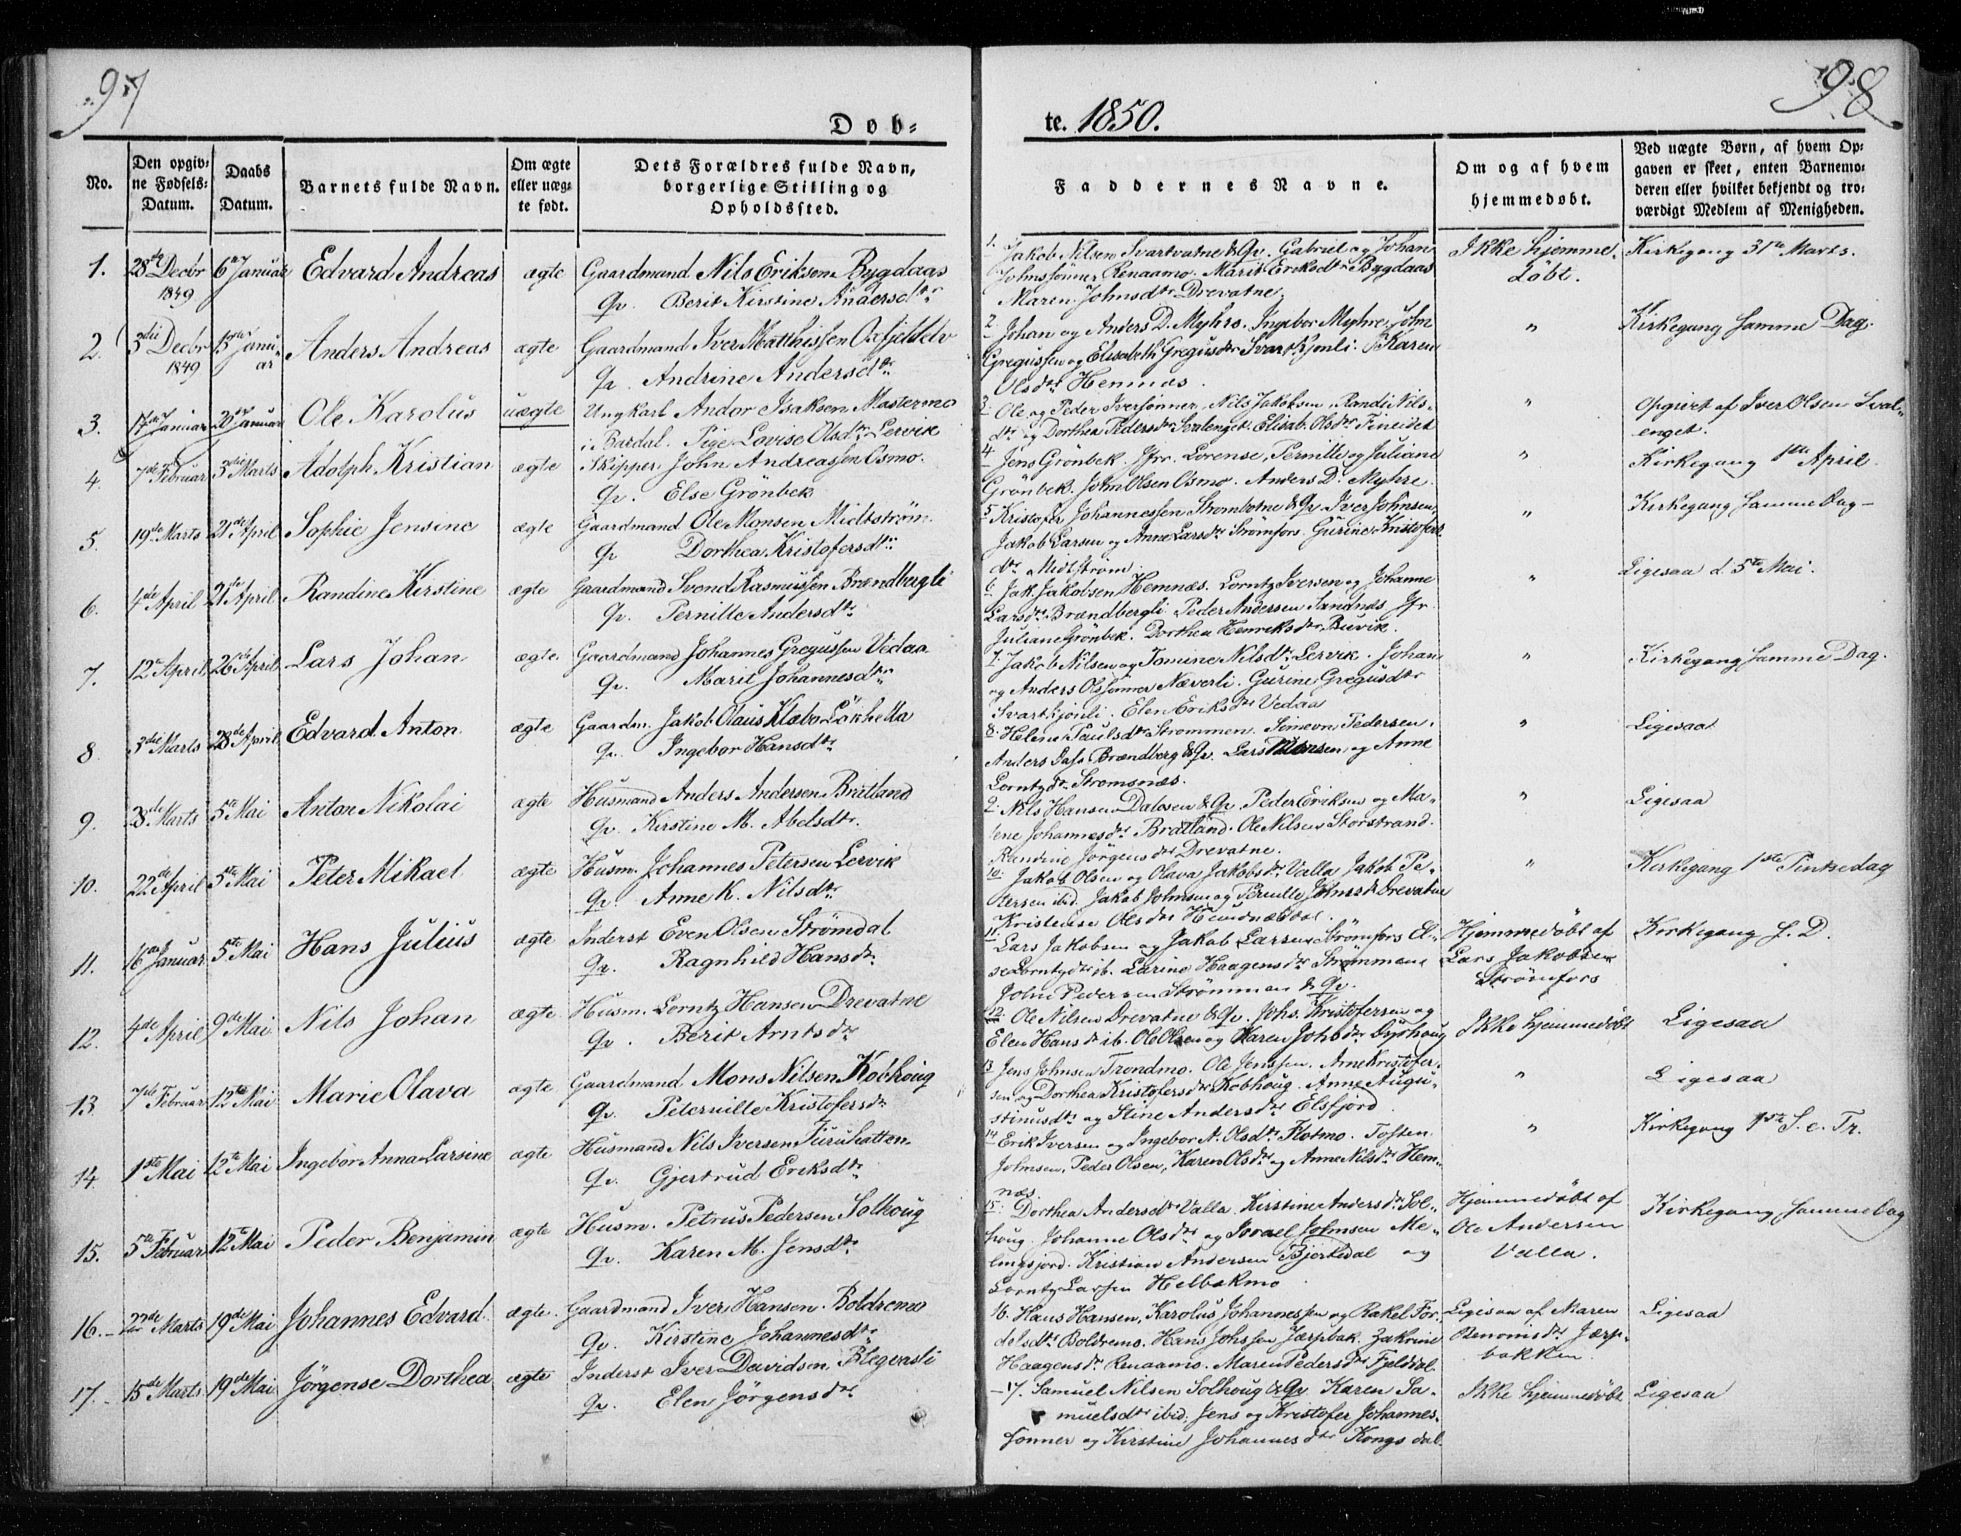 97
98
Døb-
te. 1850.
No.
Den opgiv-
ne Fødsels-
Datum.
Daabs
Datum.
Barnets fulde Navn.
Om ægte
eller uæg-
te født.
Dets Forældres fulde Navn,
borgerlige Stilling og
Opholdssted.
Faddernes Navne.
Om og af hvem
hjemmedøbt.
Ved uægte Børn, af hvem Op-
gaven er skeet, enten Barnemo-
deren eller hvilket bekjendt og tro-
værdigt Medlem af Menigheden.
1. 28de Decbr 1849 6te Januar Edvard Andreas ægte Gaardmand Nils Eriksen Bygdaas
Qv. Berit Kirstine Andersdtr
1. Jakob Nilsen Svartvatne & Qv. Gabriel og Johan
Johnssønner Renaamo. Marit Eriksdtr Bygdaas
Maren Johnsdtr Drevatne.
Ikke hjemme-
døbt.
Kirkegang 31te Marts.
2. 3die Decbr 1849 Janu-
ar Anders Andreas ægte Gaardmand Iver Matthissen Oxfjeldelv
Qv. Andrine Andersdtr
2 Johan og Anders D. Myhre. Ingebor Myhre. John
Gregussen og Elisabeth Gregusdtr Svartkjønli. Karen
Olsdtr Hemnæs.
"
Kirkegang samme Dag.
3. 17de Januar 20de Januar Ole Karolus uægte Ungkarl Andor Isaksen Mastermo
i Bardal. Pige Lovise Olsdtr Lervik
3 Ole og Peder Iverssønner, Nils Jakobsen, Randi Nils-
dtr og Dorthea Pedersdtr Svalenget. Elisab. Olsdtr Fineidet
"
Opgivet af Iver Olsen Sval-
enget.
4. 7de Februar 3die Marts Adolph Kristian ægte Skipper John Andreassen Osmo.
Qv. Else Grönbek
4 Jens Grönbek. Jfrr. Lorense, Pernille og Juliane
Grönbek. John Olsen Osmo. Anders D. Myhre.
"
Kirkegang 1ste April.
5. 19de Marts 21de April Sophie Jensine ægte Gaardmand Ole Monsen Midtstrøm.
Qv Dorthea Kristofersdtr
5 Kristofer Johannessen Strombotne & Qv. Iver Johnsen,
Jakob Larsen og Anne Larsdtr Strømfors. Gurine Kristofers
dtr Midtstrøm.
"
Kirkegang samme Dag
6. 4de April 21de April Randine Kirstine ægte Gaardmand Svend Rasmussen Brændbergli
Qv. Pernille Andersdtr
6. Jak. Jakobsen Hemnæs. Lorntz Iversen og Johanne
Larsdtr Brændbergli. Peder Andersen Sandnæs. Jfr.
Juliane Grönbek. Dorthea Henriksdtr Buvik.
"
Ligesaa d. 5te Mai.
7. 12te April 26de April Lars Johan ægte Gaardmand Johannes Gregussen Vedaa
Qv. Marit Johannesdtr
7. Jakob Nilsen og Tomine Nilsdtr Lervik. Johan
og Anders Olssønner Næverli. Gurine Gregusdtr
Svartkjönli. Elen Eriksdtr Vedaa
"
Kirkegang samme Dag.
8 3die Marts 28de April Edvard Anton ægte Gaardm. Jakob Olaus Klæbo Løkhella
Qv. Ingebor Hansdtr
8. Helene Paulsdtr Strømmen. Simeon Pedersen.
Anders Brændberg & Qv. Lars Monsen og Anne
Lorntzdtr Stromsnæs.
"
Ligesaa
9. 28de Marts 5te Mai Anton Nikolai ægte Husmand Anders Andersen Bratland
Qv. Kirstine M. Abelsdtr.
9. Nils Hansen Dalosen & Qv. Peder Eriksen og Ma-
lene Johannesdtr Bratland. Ole Nilsen Storstrand.
Randine Jörgensdtr Drevatne.
"
Ligesaa
10. 22de April 5te Mai Peter Mikael ægte Husm. Johannes Petersen Lervik
Qv. Anne K. Nilsdtr
10. Jakob Olsen og Olava Jakobsdtr Valla. Jakob Pe-
tersen ibid. Jakob Johnsen og Pernille Johnsdtr Drevatne
Kristense Olsdtr Hemnæsdal.
"
Kirkegang 1ste Pintsedag
11. 16de Januar 5te Mai Hans Julius ægte Inderst Even Olsen Strømdal
Qv. Ragnhild Hansdtr
11 Lars Jakobsen og Jakob Larsen Strömfors. El-
se Lorntzdtr ib. Larine Haagensdtr Strømmen
John Pedersen Strömmen & Qv.
Hjemmedöbt af
Lars Jakobsen
Strömfors
Kirkegang s. D.
12. 4de April 9de Mai Nils Johan ægte Husm. Lorntz Hansen Drevatne
Qv. Berit Arntsdtr
12. Ole Nilsen Drevatne & Qv. Johs. Kristofersen og
Elen Hansdtr ib. Ole Olsen og Karen Johsdtr Dyrhoug
Ikke hjemmedöbt
Ligesaa
13 7de Februar 12te Mai Marie Olava ægte Gaardmand Mons Nilsen Kobhoug
Qv. Peternille Kristofersdtr
13 Jens Johnsen Trondmo. Ole Jenssen. Arne Kristofer-
sen og Dorthea Kristofersdtr Kobhoug. Anne Augu-
stinusdtr og Stine Andersdtr Elsfjord
"
Ligesaa
14 1ste Mai 12te Mai Ingebor Anna Larsine ægte Husmand Nils Iversen Furuhatten
Qv. Gjertrud Eriksdtr
14 Erik Iversen og Ingebor A. Olsdtr Flotmo. Tosten
Johnsen, Peder Olsen, Karen Olsdtr og Anne Nilsdtr Hem-
næs.
"
Kirkegang 1ste S. e. Tr.
15. 5te Februar 12te Mai Peder Benjamin ægte Husm. Petrus Pedersen Solhoug
Qv. Karen M. Jensdtr
15. Dorthea Andersdtr Valla. Kirstine Andersdtr Sol-
houg. Johanne Olsdtr og Israel Johnsen Me-
lingsjord. Kristian Andersen Bjerkdal og
Lorntz Larssen Helbakmo
Hjemmedöbt af
Ole Andersen
Valla.
Kirkegang samme Dag
16. Marts 19de Mai Johannes Edvard ægte. Gaardmand Iver Hansen Boldremo
Qv. Kirstine Johannesdtr
16. Hans Hansen, Karolus Johannessen og Rakel For-
delsdtr Boldremo. Hans Johssen Jærpbak. Zakrine
Haagensdtr Renaamo. Maren Pedersdtr Fjelddal.
Ligesaa af Maren
Benonisdtr Jærp-
bakken
Ligesaa
17. 15de Marts 19de Mai Jörgense Dorthea ægte Inderst Iver Davidsen Blegensli
Qv. Elen Jörgensdtr
17. Samuel Nilsen Solhoug & Qv. Karen Sa-
muelsdtr ibid. Jens og Kristofer Johannes-
sönner og Kirstine Johannesdtr Kongsdal.
Ikke hjemmedöbt
Ligesaa